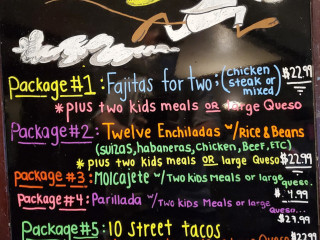 Package #1: Fajitas for two: (chicken steak or mixed) $22.99
*plus two kids meals OR large Queso
Package #2: Twelve Enchiladas w/Rice & Beans
(suizas, habaneras, Chicken, Beef, ETC)
*plus two kids meals OR large Queso $22.99
package #3: Molcajete w/Two kids Meals or large queso.
Package #4: Parillada w/Two kids Meals or large queso...
$23.99
Package #5: 10 street tacos